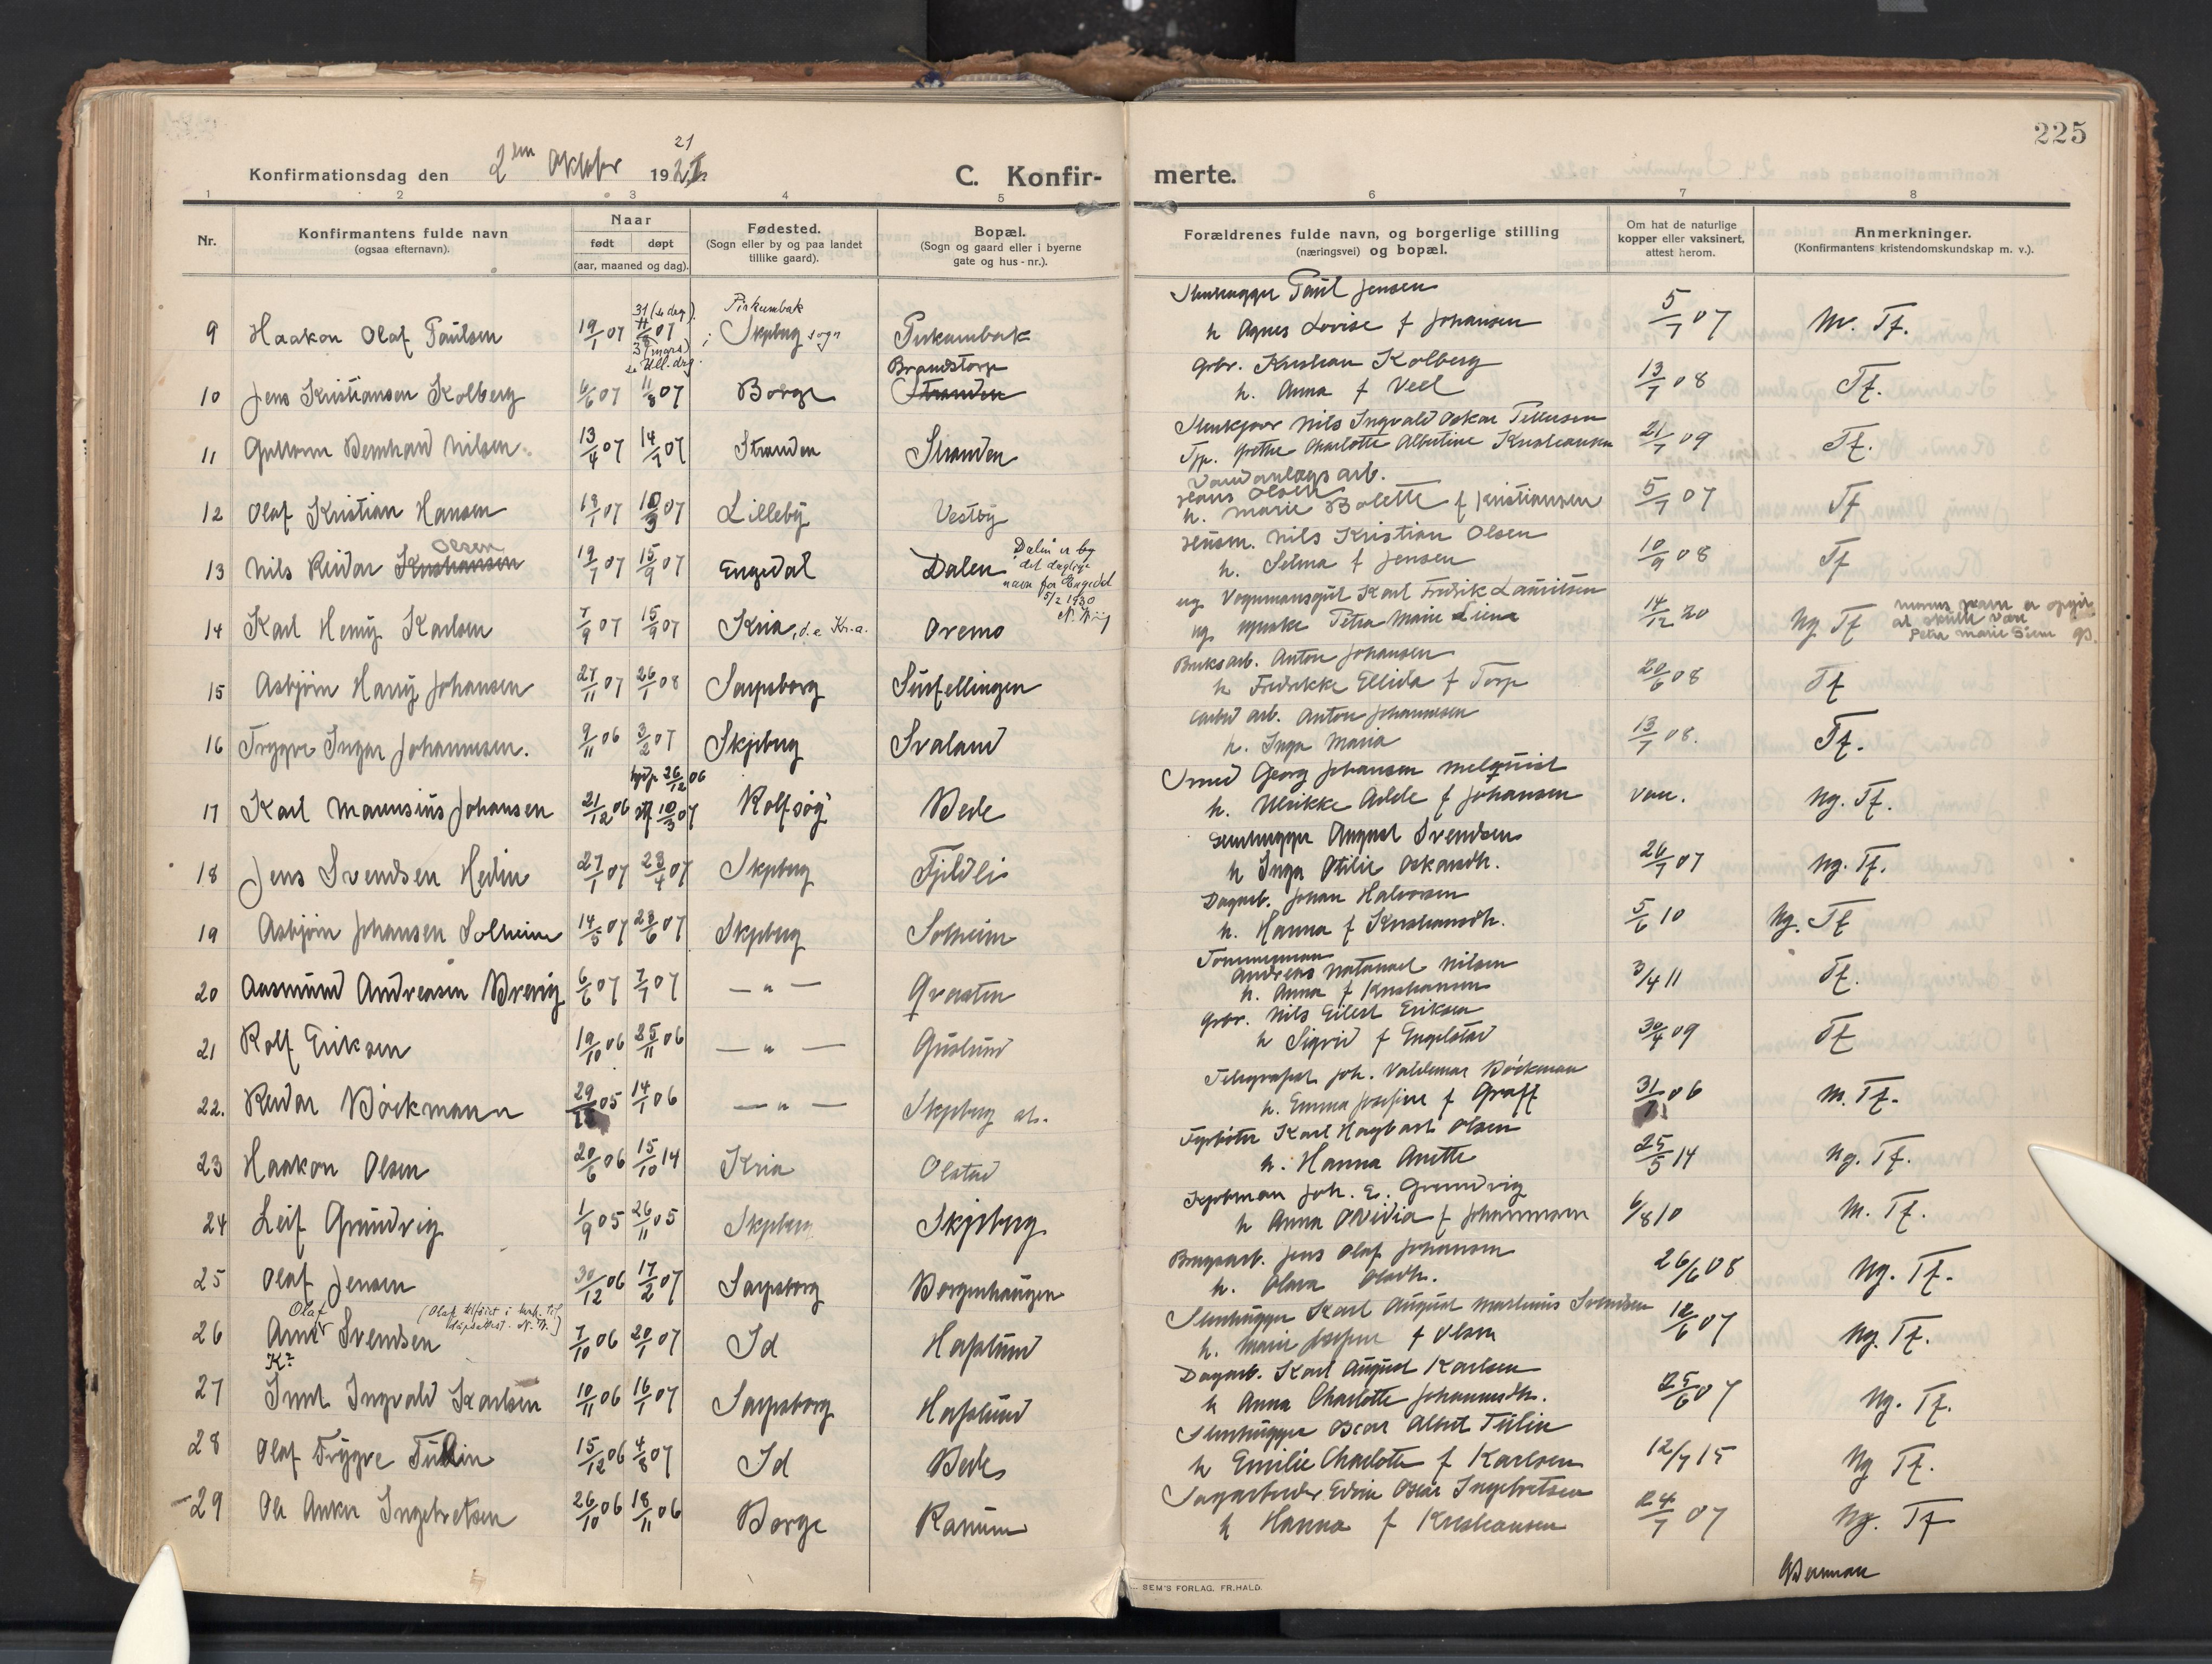 225
Konfirmationsdag den 2den Oktober 1921
21
C. Konfir-
merte.
1 2 3 4 5 6 7 8
Nr.
Konfirmantens fulde navn
(ogsaa efternavn).
Naar
født døpt
(aar, maaned og dag).
Fødested.
(Sogn eller by og paa landet
tillike gaard).
Bopæl.
(Sogn og gaard eller i byerne
gate og hus - nr.).
Forældrenes fulde navn, og borgerlige stilling
(næringsvei) og bopæl.
Om hat de naturlige
kopper eller vaksinert,
attest herom.
Anmerkninger.
(Konfirmantens kristendomskundskap m. v.).
Stenhugger Paul Jensen
9 Haakon Olaf Paulsen 19/1 07 Skjeberg sogn h Agnes Lovise f Johansen 5/7 07 M. Tf.
Brandstorp Gbr. Kristian Kolberg
10 Jens Kristiansen Kolberg 6/6 07 11/8 07 Borge Stranden h. Anna f Veel 13/7 08 Tf.
Nils Ingvald Oskar Pettersen
11 Guttorm Bernhard Nilsen 13/4 07 14/7 07 Stranden Stranden Grethe Charlotte Albertine Kristiansen 21/7 09 Tf.
Vandanlægs arb.
Hans Olsen
12 Olaf Kristian Hansen 13/1 07 10/3 07 Lilleby Vestby h. Marie Bolette f Kristiansen 5/7 07 Tf
Olsen Nils Kristian Olsen
13 Nils Reidar Kristiansen 19/7 07 15/9 07 Engedal Dalen h. Selma f Jensen 10/9 08 Tf
Dalen er by
det daglige
navn for Engedal
5/2 1930
ug. Vognmansgut Karl Fredrik Lauritsen
14 Karl Henry Karlsen 7/9 07 15/9 07 Kria, d.e. Kr.a. Oremo ug. Petra Marie Liena 14/12 20 Ng Tf
navn er opgit
at skulle være
Petra Marie
Bruksarb. Anton Johansen
15 Asbjørn Harry Johansen 27/11 07 26/1 08 Sarpsborg Surfellingen h Fredrikke Elida f Torp 20/6 08 Tf
Carbid arb. Anton Johannesen
16 Trygve Ingar Johannesen. 9/11 06 3/2 07 Skjeberg Svaland h. Inga Maria 13/7 08. Tf.
hjdp 26/12 06 Smed Georg Johansen Melquist
17 Karl Marensius Johansen 21/12 06 10/3 07 Rolfsøy Bede h. Ulrikke Adele f Johansen vac. Ng. Tf.
Stenhugger August Svendsen
18 Jens Svendsen Hedin 27/1 07 28/4 07 Skjeberg Fjeldli h Inga Otilie Oskarsdtr. 26/7 07 Ng. Tf.
Dagarb. Johan Halvorsen
19 Asbjørn Johansen Solheim 14/5 07 23/6 07 Skjeberg Solheim h. Hanna f Kristiansdtr. 5/6 10 Ng. Tf
Tømmermann
Andreas Natanael Nilsen
20 Aasmund Andreasen Brevig 6/6 07 7/7 07 — " — Graaten h. Anna f Kristiansen 3/4 11 Tf.
Gbr. Nils Eilert Eriksen
21 Rolf Eriksen 19/10 06 25/11 06 — " — Guslund h Sigrid f Engelstad 30/4 09 Tf
Telegrafist Joh. Valdemar Böckman
22. Reidar Böckmann 29/ 05 14/1 06 — " — Skjeberg st. h. Emma Josefine f Graff 31/ 06 M. Tf.
Fyrbøter Karl Hagbart Olsen
23 Haakon Olsen 20/6 06 15/10 14 Kria Olstad h. Hanna Anette 25/5 14 Ng. Tf.
Kjøbman Joh. E. Grundvig
24 Leif Grundvig 1/9 05 26/11 05 Skjeberg Skjeberg h Anna Olvidia f Johannesen 6/8 10 M. Tf.
Brugsarb. Jens Olaf Johansen
25 Olaf Jensen 30/12 06 17/2 07 Sarpsborg Borgenhaugen h. Olava Olsdtr. 26/6 08 Ng. Tf.
Olaf (Olaf tilføiet i henh. til
dåpsattest. N. N.) Stenhugger Karl August Martinus Svendsen
26 Arne Svendsen 7/10 06 20/1 07 Id Hafslund h. Marie Josefine f Olsen 12/6 07 Ng. Tf.
Dagarb. Karl August Karlsen
27 Ingvald Karlsen 10/11 06 16/1 07 Sarpsborg Hafslund h Anna Charlotte Johannesdtr. 25/6 07 Ng. Tf.
Stenhugger Oscar Albert Tulin
28 Olaf Trygve Tulin 15/12 06 4/8 07 Id Bede h Emilie Charlotte f Karlsen 12/7 15 Ng Tf.
Sagarbeider Edvin Oscar Ingebretsen
29 Ole Anker Ingebretsen 26/10 06 18/11 06 Borge Ranum h Hanna f Kristiansen 24/7 07 Ng. Tf
SEM'S FORLAG, FR.HALD.